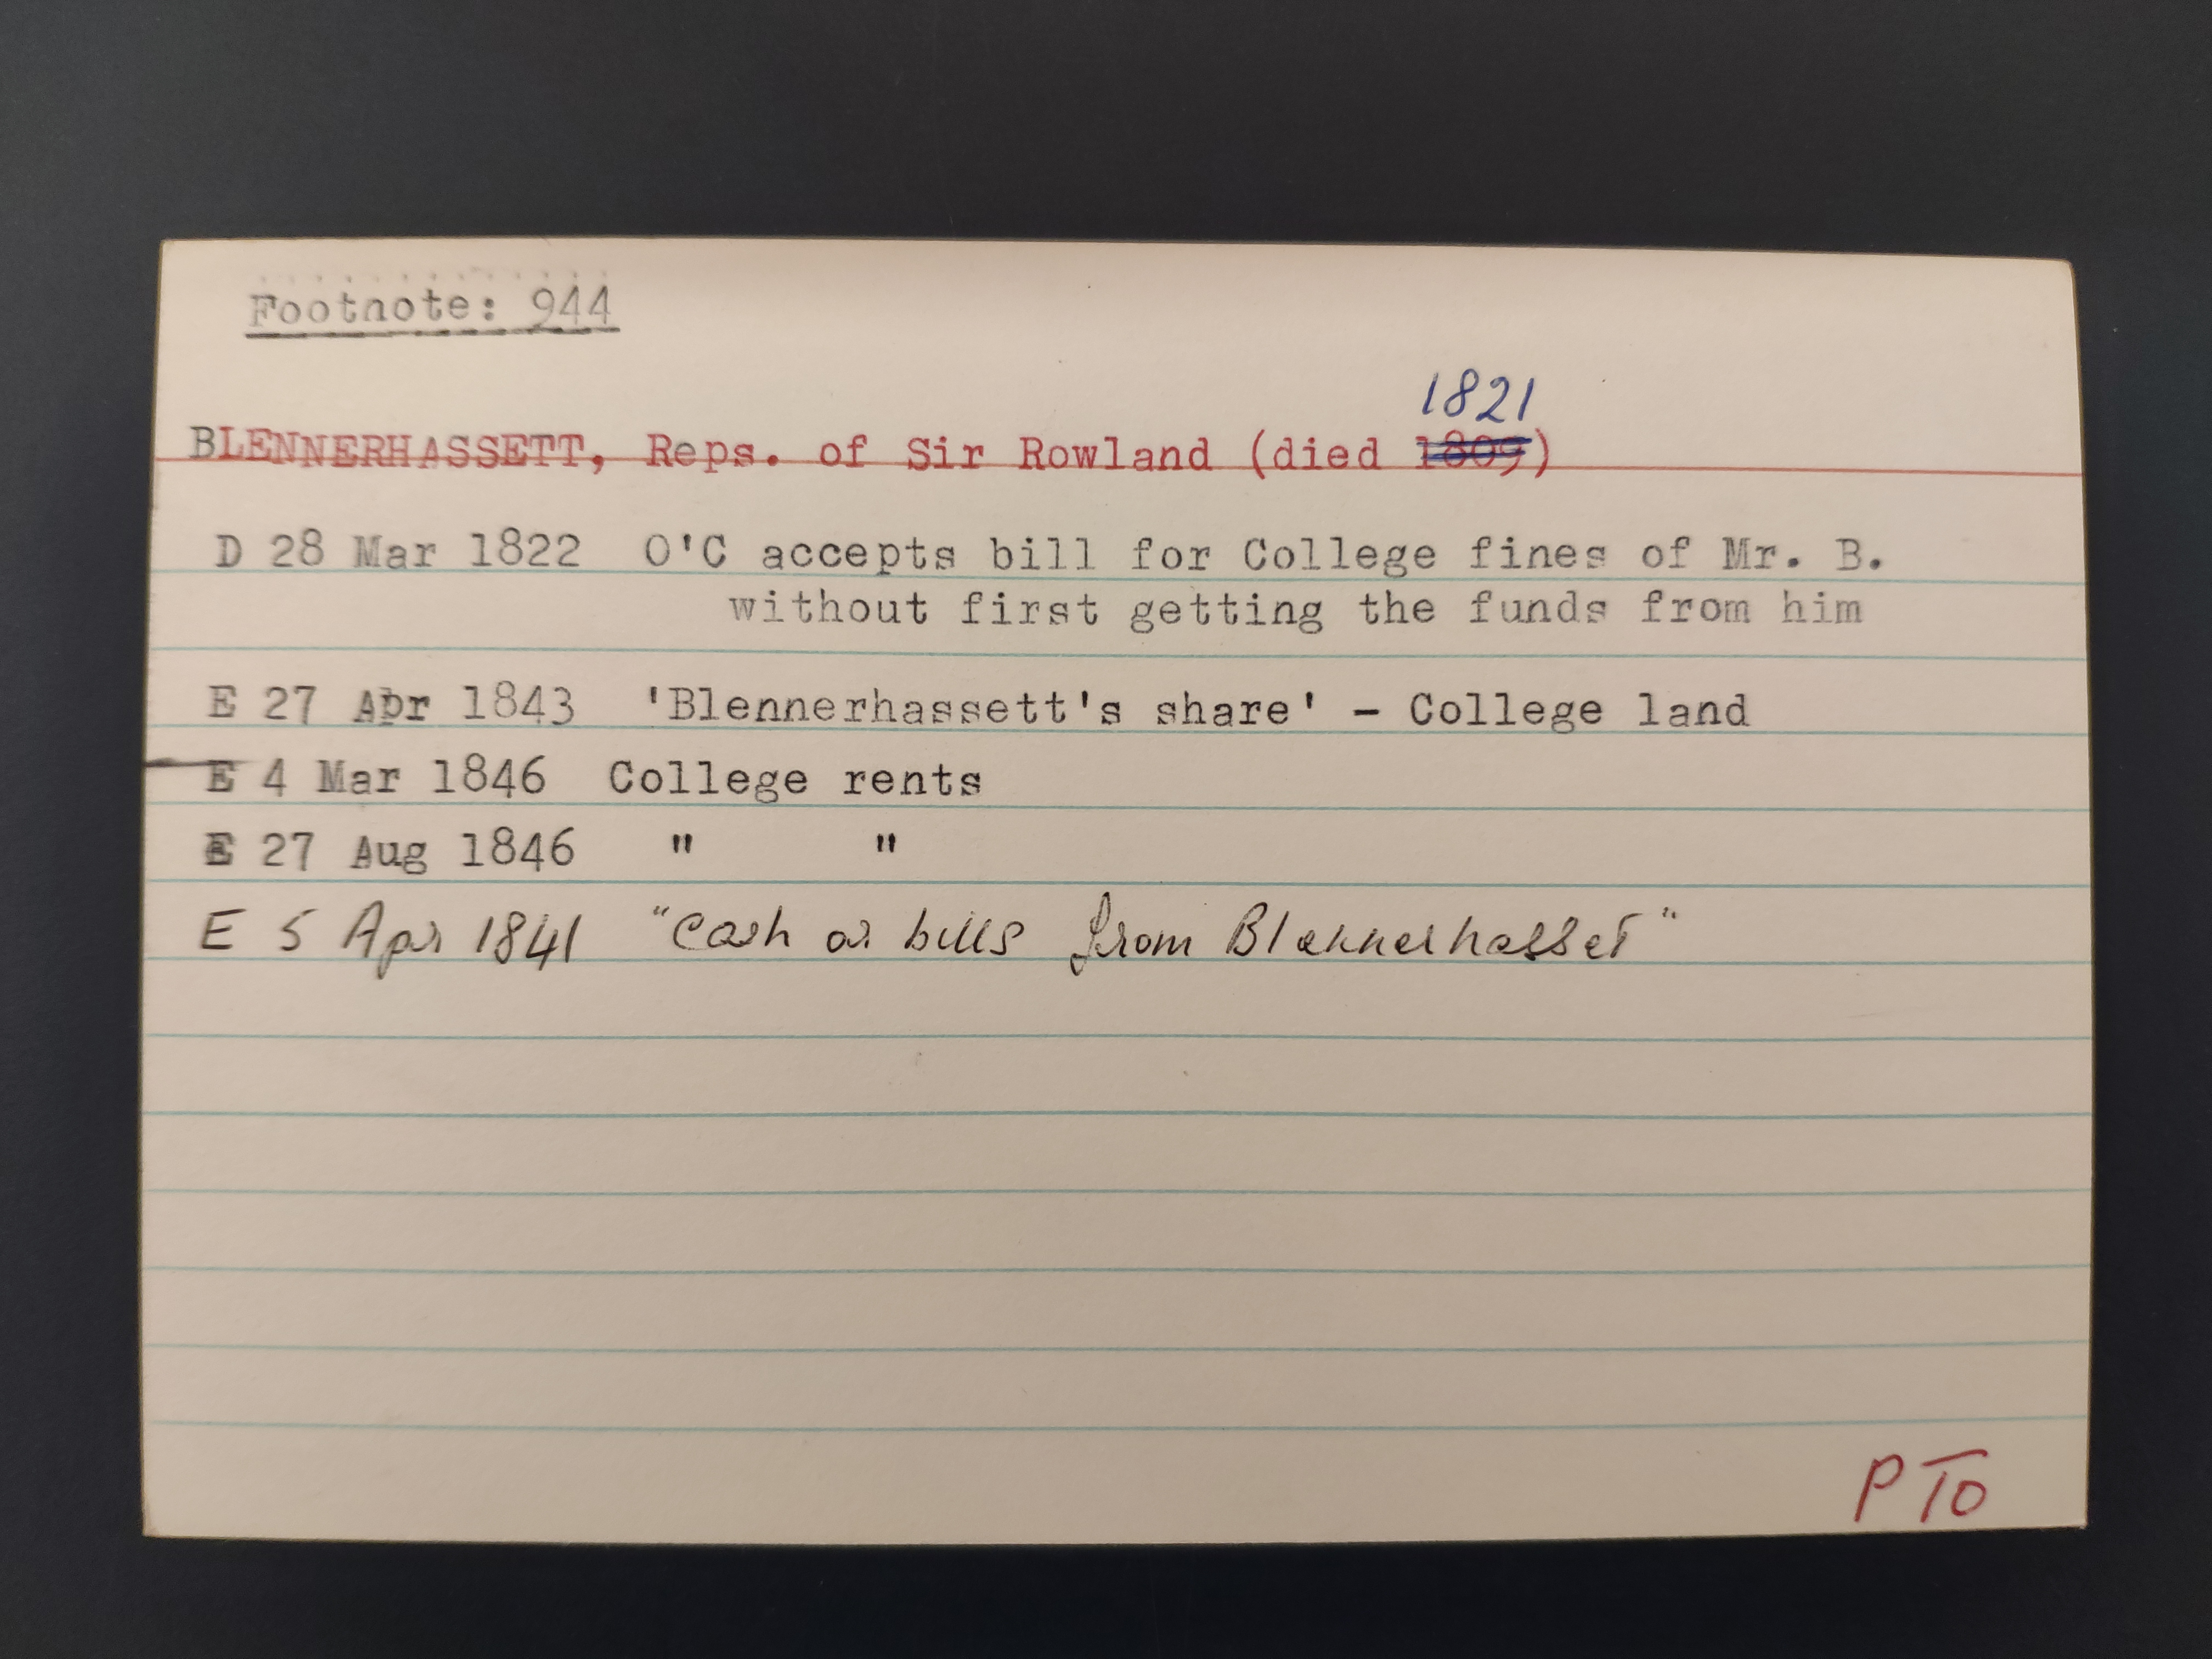 Footnote: 944
1821
BLENNERHASSETT, Reps. of Sir Rowland (died 1809)
D 28 Mar 1822 O'C accepts bill for College fines of Mr. B.
without first getting the funds from him
E 27 Apr 1843 'Blennerhassett's share' - College land
E 4 Mar 1846 College rents
E 27 Aug 1846 " "
E 5 Apr 1841 "Cash or bills from Blennerhasset"
PTO